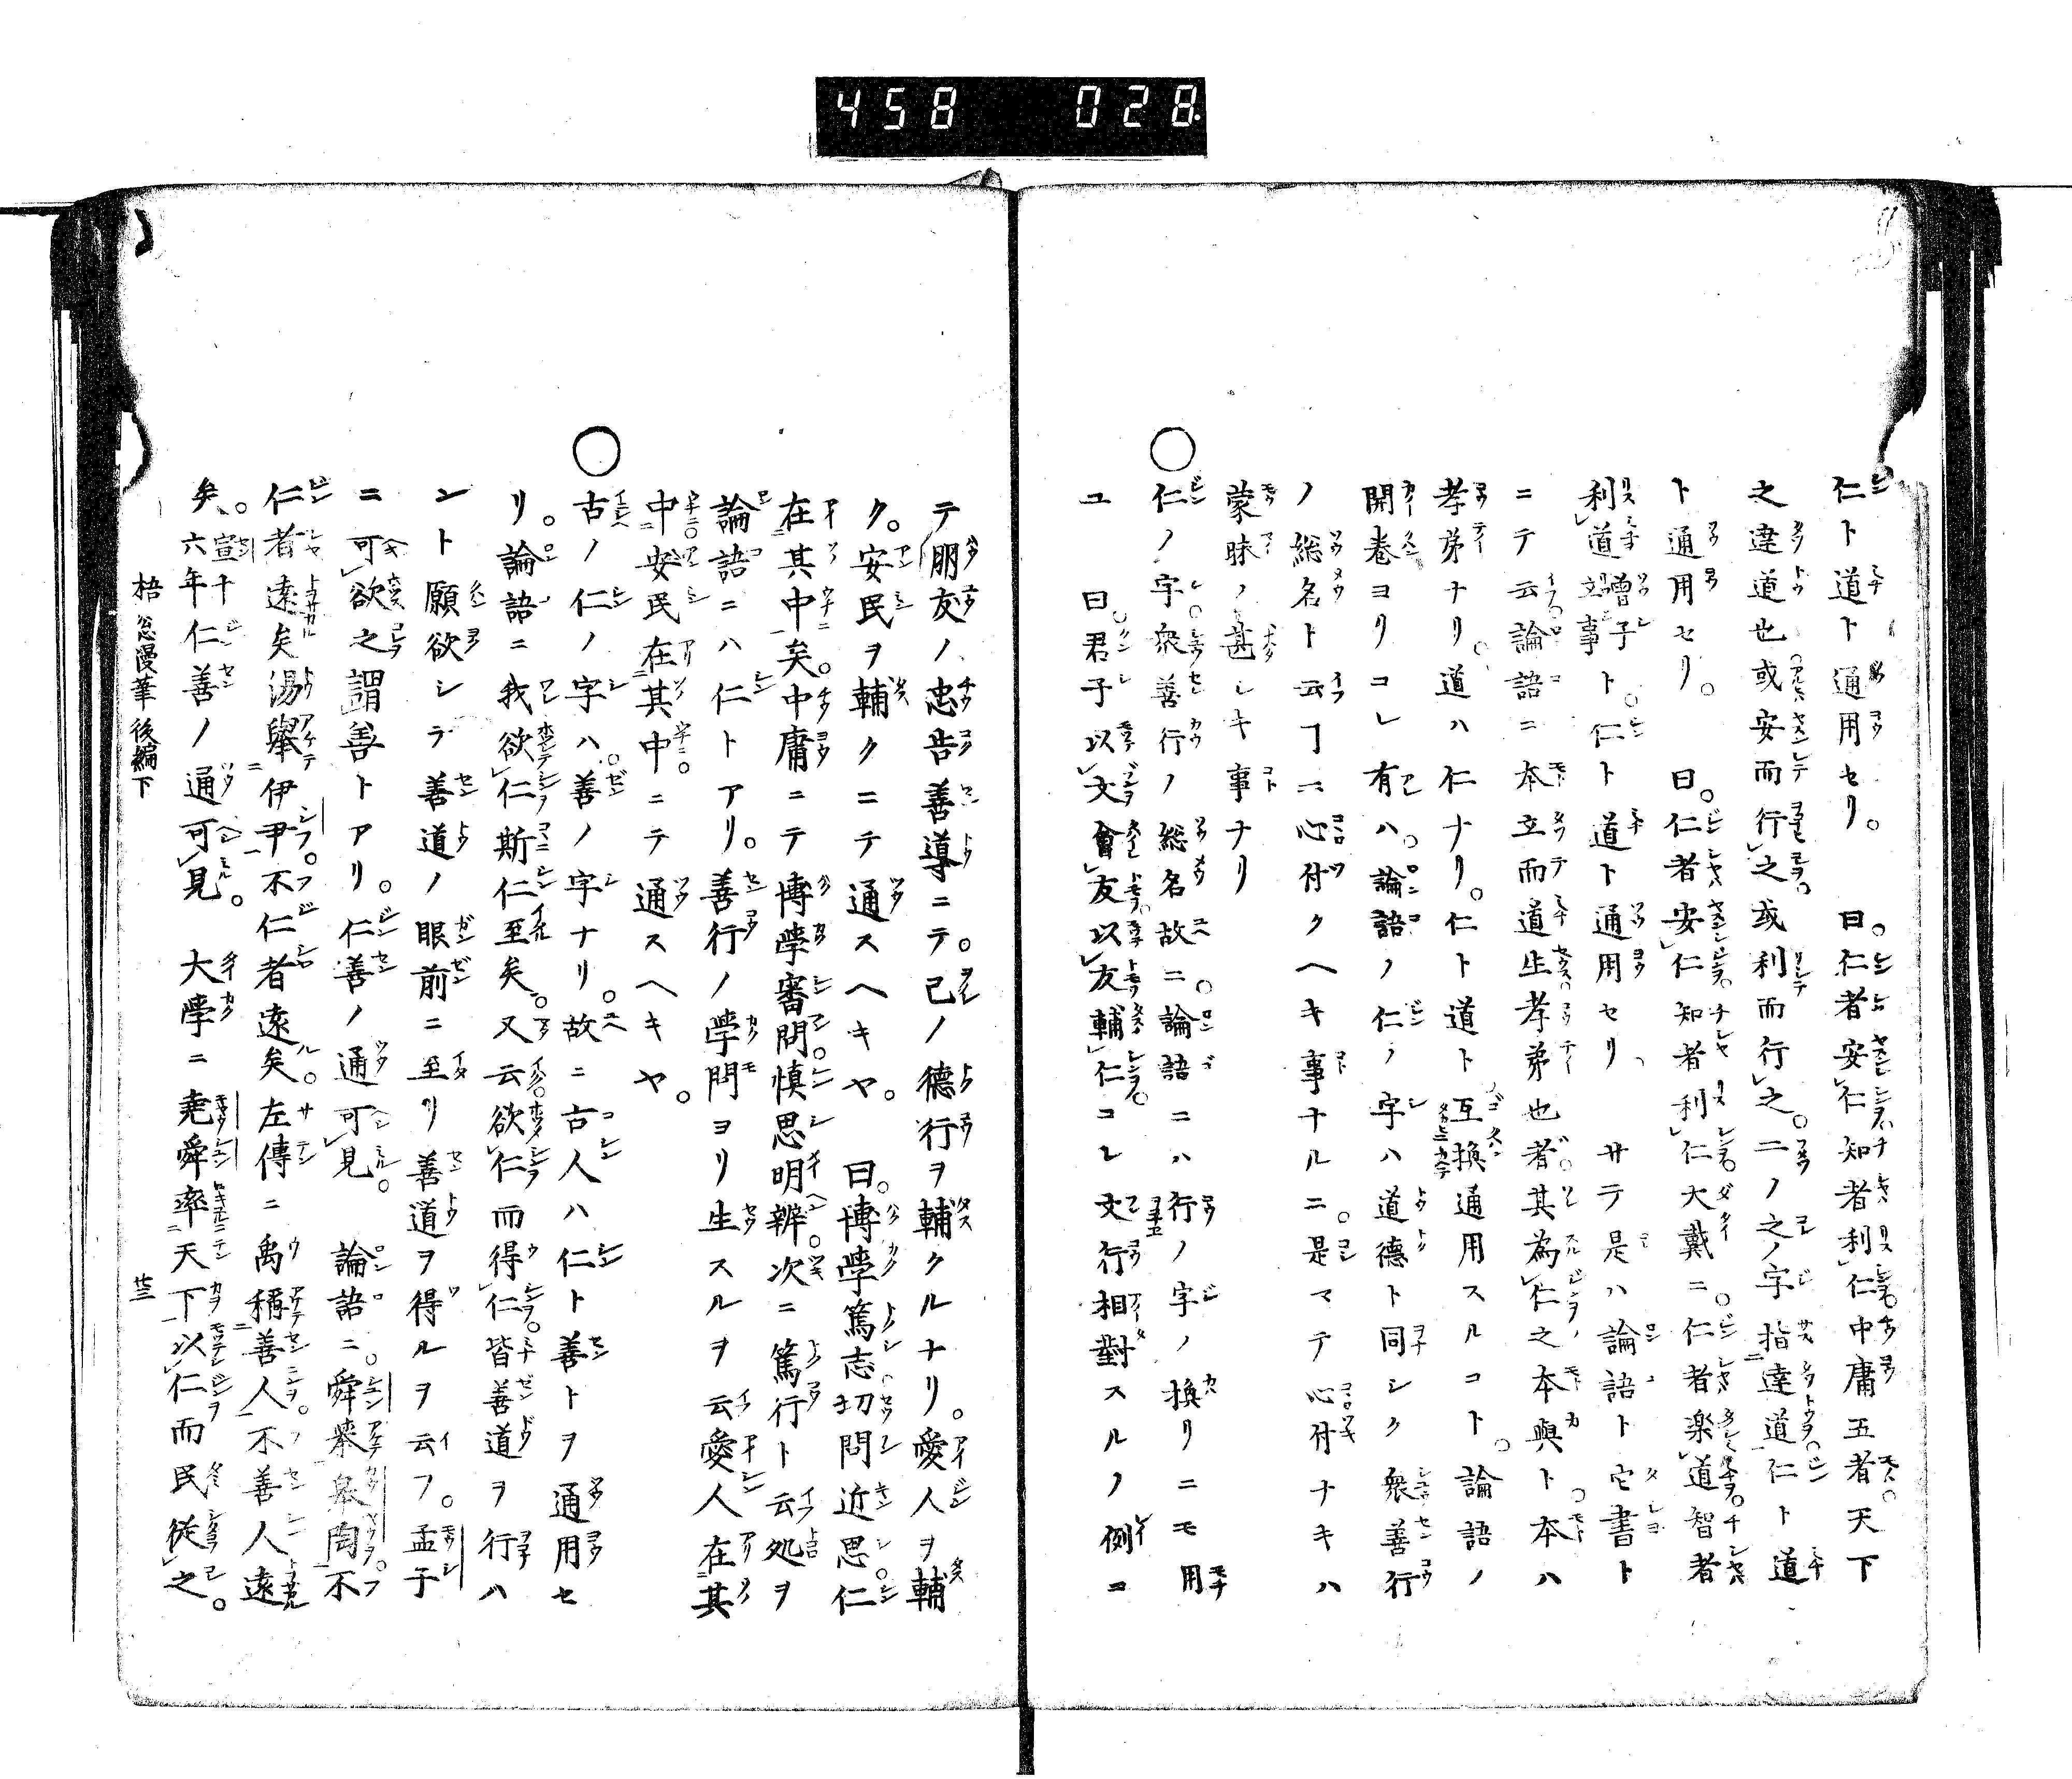 458 028
仁ト道ト通用セリ。曰。仁者安仁知者利仁中庸五者天下
之達道也或安而行之或利而行之。二ノ之ノ字指達道仁ト道
ト通用セリ。曰。仁者安仁知者利仁大戴ニ。仁者楽道智者
利道曽子立事ト。仁ト道ト通用セリ サテ是ハ論語ト它書ト
ニテ云論語ニ本立而道生孝弟也者其為仁之本與ト。本ハ
孝弟ナリ。道ハ仁ナリ。仁ト道ト互換通用スルコト。論語ノ
開巻ヨリコレ有ハ。論語ノ仁ノ字ハ道德ト同シク衆善行
ノ総名ト云ヿニ心付クヘキ事ナルニ。是マテ心付ナキハ
蒙昧ノ甚シキ事ナリ
○仁ノ字衆善行ノ総名故ニ。論語ニハ行ノ字ノ換リニモ用
ユ 曰。君子以文會友以友輔仁コレ文行相對スルノ例コ
テ朋友ノ忠告善導ニテ。己ノ德行ヲ輔クルナリ。愛人ヲ輔
ク。安民ヲ輔クニテ通スヘキヤ。曰。博學篤志切問近思仁
在其中矣。中庸ニテ博學審問慎思明辨。次ニ篤行ト云処ヲ
論語ニハ仁トアリ。善行ノ學問ヨリ生スルヲ云愛人在其
中安民在其中ニテ通スヘキヤ。
○古ノ仁ノ字ハ。善ノ字ナリ。故ニ古人ハ仁ト善トヲ通用セ
リ。論語ニ我欲仁斯仁至矣。又云欲仁而得仁皆善道ヲ行ハ
ント願欲シテ善道ノ眼前ニ至リ善道ヲ得ルヲ云フ。孟子
ニ可欲之謂善トアリ。仁善ノ通可見。論語ニ。舜擧皐陶不
仁者遠矣湯擧伊尹。不仁者遠矣。左傳ニ禹稱善人不善人遠
矣。宣十六年仁善ノ通可見。大學ニ堯舜率天下以仁而民従之。
梧窓漫筆後編下 廿三